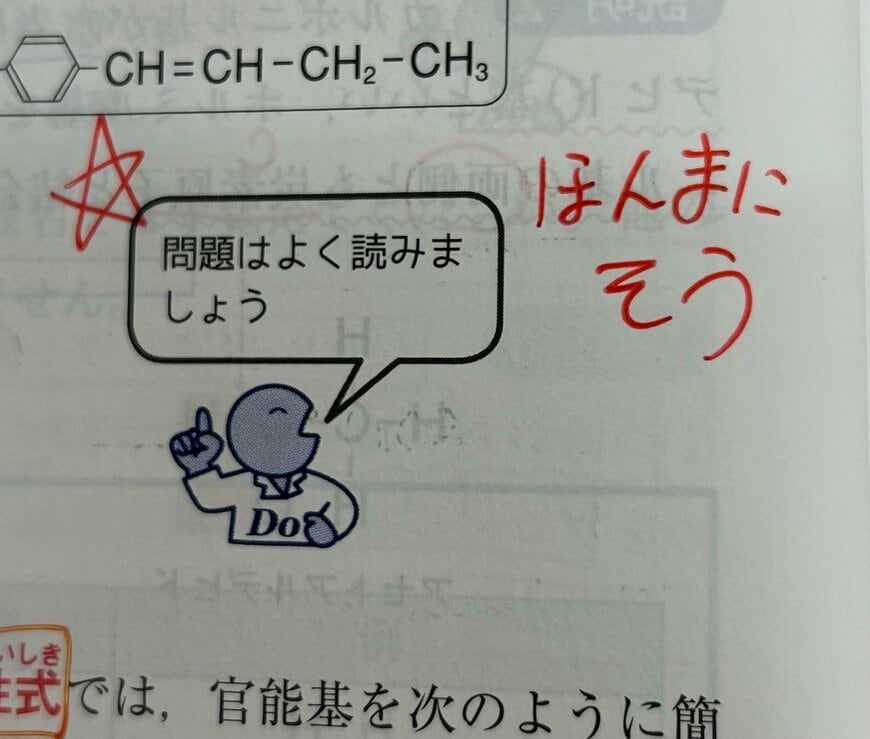 CH=CH-CH₂-CH₃
ほんまに
そう
問題はよく読みま
しょう
Do
いしき
性式では，官能基を次のように簡